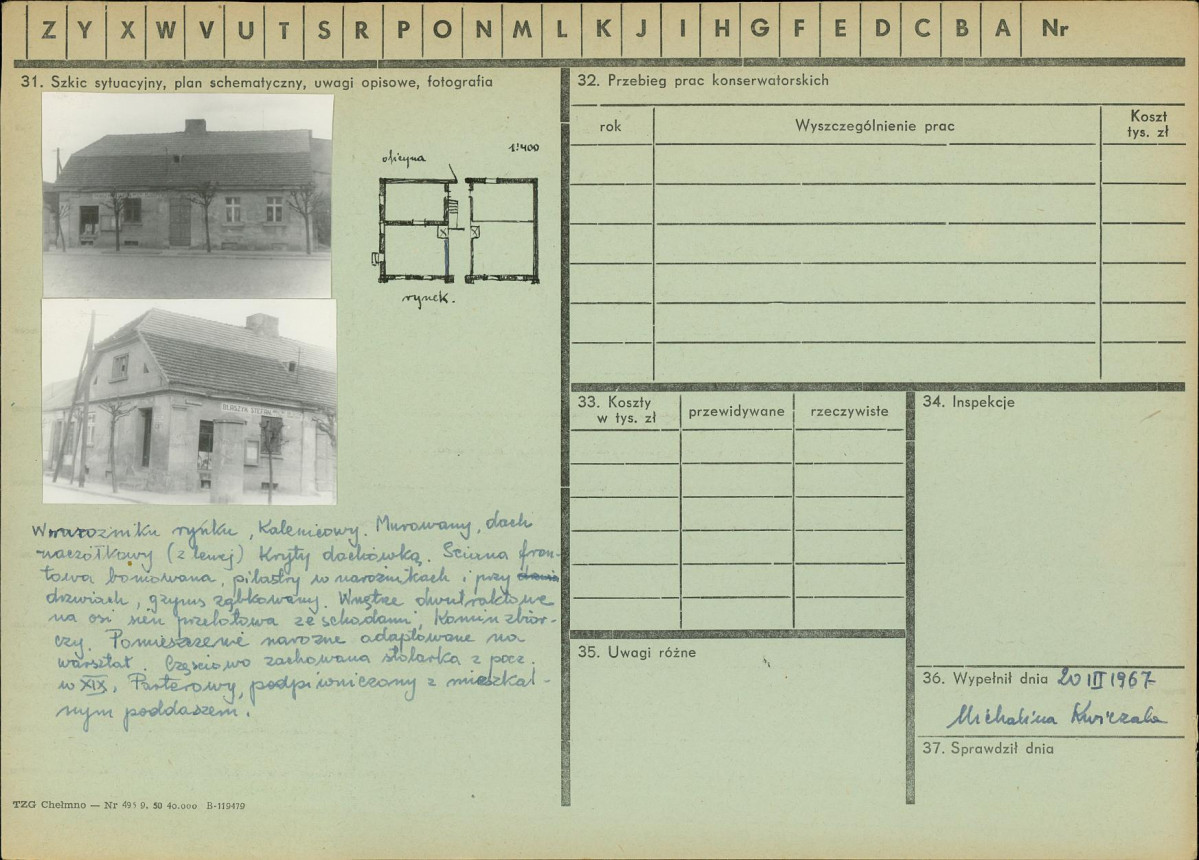 Z Y X W V U T S R P O N M L K J I H G F E D C B A Nr
31. Szkic sytuacyjny, plan schematyczny, uwagi opisowe, fotografia
oficyna
1:400
rynek.
BŁASZYK STEFAN
W narożniku rynku, Kalenicowy. Murowany, dach
naczółkowy (z lewej) Kryty dachówką. Ściana fron-
towa boniowana, pilastry w narożnikach i przy
drzwiach, gzyms ząbkowany. Wnętrze dwutraktowe
na osi sień przelotowa ze schodami, Komin zbior-
czy. Pomieszczenie narożne adaptowane na
warsztat. Częściowo zachowana stolarka z pocz.
w XIX, Parterowy, podpiwniczony z mieszkal-
nym poddaszem.
TZG Chełmno — Nr 495 9. 50 40.000 B-119479
32. Przebieg prac konserwatorskich
rok
Wyszczególnienie prac
Koszt
tys. zł
33. Koszty
w tys. zł
przewidywane
rzeczywiste
34. Inspekcje
35. Uwagi różne
36. Wypełnił dnia 20 III 1967
Michalina Kwiczala
37. Sprawdził dnia